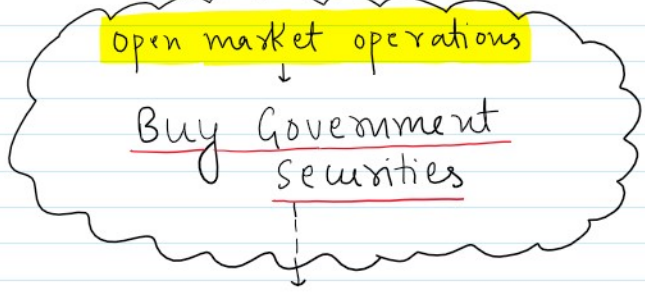 open market operations
Buy Government
Securities